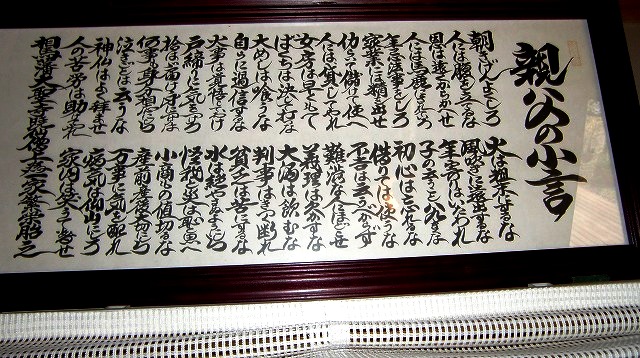 親父の小言
朝きげんよくしろ
人には腹を立てるな
恩は遠くからかくせ
人には馬鹿にされていろ
年忌法事をしろ
家業には精出せ
仂いて儲けて使へ
人には貸してやれ
女房は早くもて
ばくちは決して打な
大めしは喰うな
自らに過信するな
大事は覚悟しておけ
戸締りに気をつけろ
拾わば届け身につけるな
何事も身分相応にしろ
泣きごとは云うな
神仏はよく拝ませ
人の苦労は助けてやれ
火は粗末にするな
風吹きに遠出するな
年寄りはいたわれ
子の云うこと八九きくな
初心は忘れるな
借りては使うな
不吉は云うべからず
難渋な人にほどこせ
義理は欠かすな
大酒は飲むな
判事はきつく断れ
貧乏は苦にするな
水は絶やさぬようにしろ
怪我と災は恥と思へ
小商もの値切るな
産前産後大切にしろ
万事に気を配れ
病気は仰山にしろ
家内は笑うて暮せ